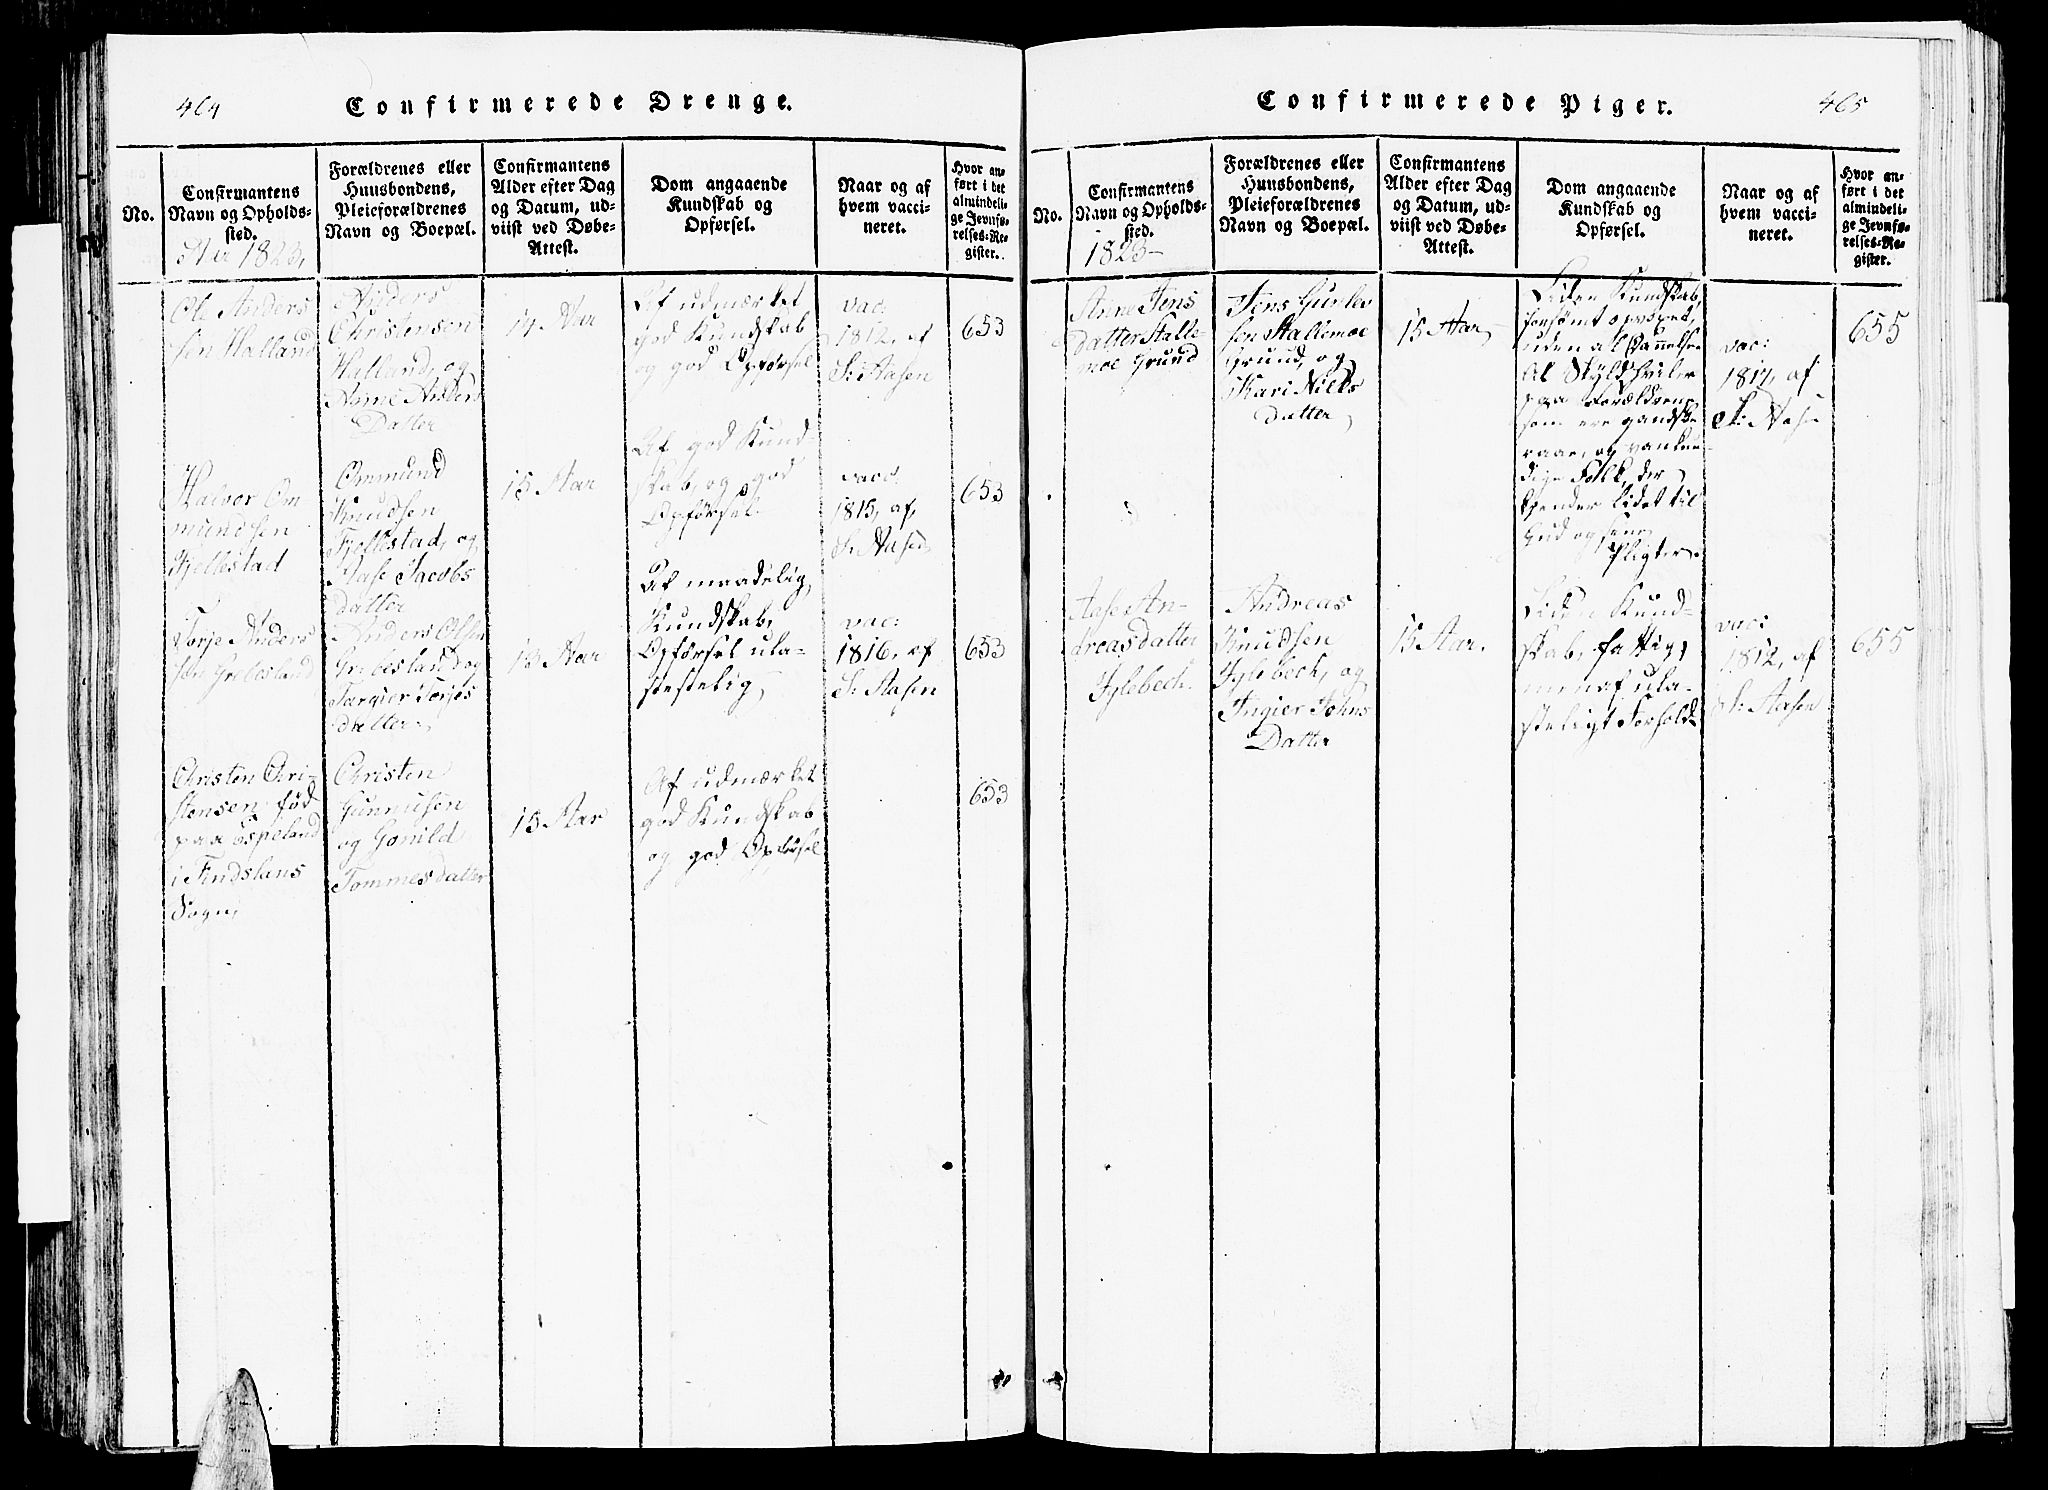 464
Confirmerede Drenge.
No.
Confirmantens
Navn og Opholds-
sted.
Aar 1823,
Forældrenes eller
Huusbondens,
Pleieforældrenes
Navn og Boepæl.
Confirmantens
Alder efter Dag
og Datum, ud-
viist ved Døbe-
Attest.
Dom angaaende
Kundskab og
Opførsel.
Naar og af
hvem vacci-
neret.
Hvor an-
ført i det
almindeli-
ge Jevnfø-
relses-Re-
gister.
Ole Anders
sen Halland
Anders
Christensen
Halland, og
Anne Anders
Datter
14 Aar
Af udmærket
god Kundskab
og god Opførsel
vac:
1812, af
S: Aasen
653
Halvor Om
mundsen
Fjellestad
Ommund
Knudsen
Fjellestad, og
Aase Jacobs
datter
15 Aar
Af god Kund-
skab, og god
Opførsel
vacc:
1815, af,
S: Aasen
653
Torje Anders
sen Grebesland
Anders Olsen
Grebesland og
Torjes
datter.
Aar
Af maadelig
Kundskab,
Opførsel ula-
stelig,
vac:
1816, af
S: Aasen
653
Christen Chri-
stensen, fød
paa Espeland
i Findslans
Sogn,
Christen
Gunnusen
og Gonild
Tommesdatter
15 Aar
Af udmærket
god Kundskab
og god Opførsel
653
Confirmerede Piger.
465
No.
Confirmantens
Navn og Opholds-
sted.
1823-
Forældrenes eller
Huusbondens,
Pleieforældrenes
Navn og Boepæl.
Confirmantens
Alder efter Dag
og Datum, ud-
viist ved Døbe-
Attest.
Dom angaaende
Kundskab og
Opførsel.
Naar og af
hvem vacci-
neret.
Hvor an-
ført i det
almindeli-
ge Jevnfø-
relses-Re-
gister.
Anne Jens
datter Stalle-
moe Grund
Jens Gunles
sen Stallemoe
Grund, og
Kari Nills
datter,
15 Aar,
Liden Kundskab,
forsømt opvoxet,
uden al Dannelse
Al Skyld hviler
paa Forældrene
som ere gandske
raae, og vankun-
dige Folk, der
kjender lidet til
Gud og sine
Pligter.
vac:
1817, af
S: Aasen
655
Aase An-
dreasdatter
Iglebech.
Andreas
Knudsen
Iglebech, og
Ingier Johns
Datter
15 Aar.
Liden Kund-
skab, fattig,
men af ula-
steligt Forhold
vac:
1812, af
S: Aasen
655